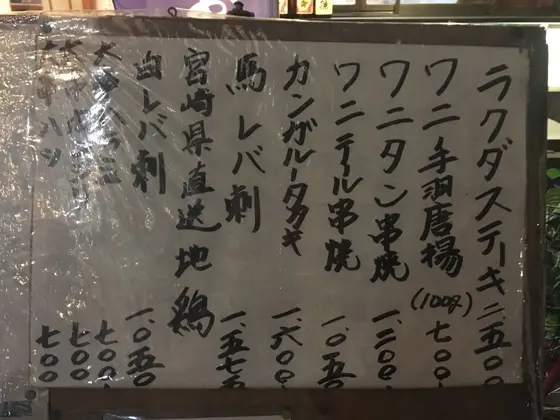 ラクダステーキ 二.五〇〇
ワニ手羽唐揚(100g) 七〇〇
ワニタン串焼 一.二〇〇
ワニテール串焼 一.〇五〇
カンガルータタキ 一.六〇〇
馬レバ刺 一.五七五
宮崎県直送地鶏
白レバ刺 一.〇五〇
七〇〇
七〇〇
七〇〇